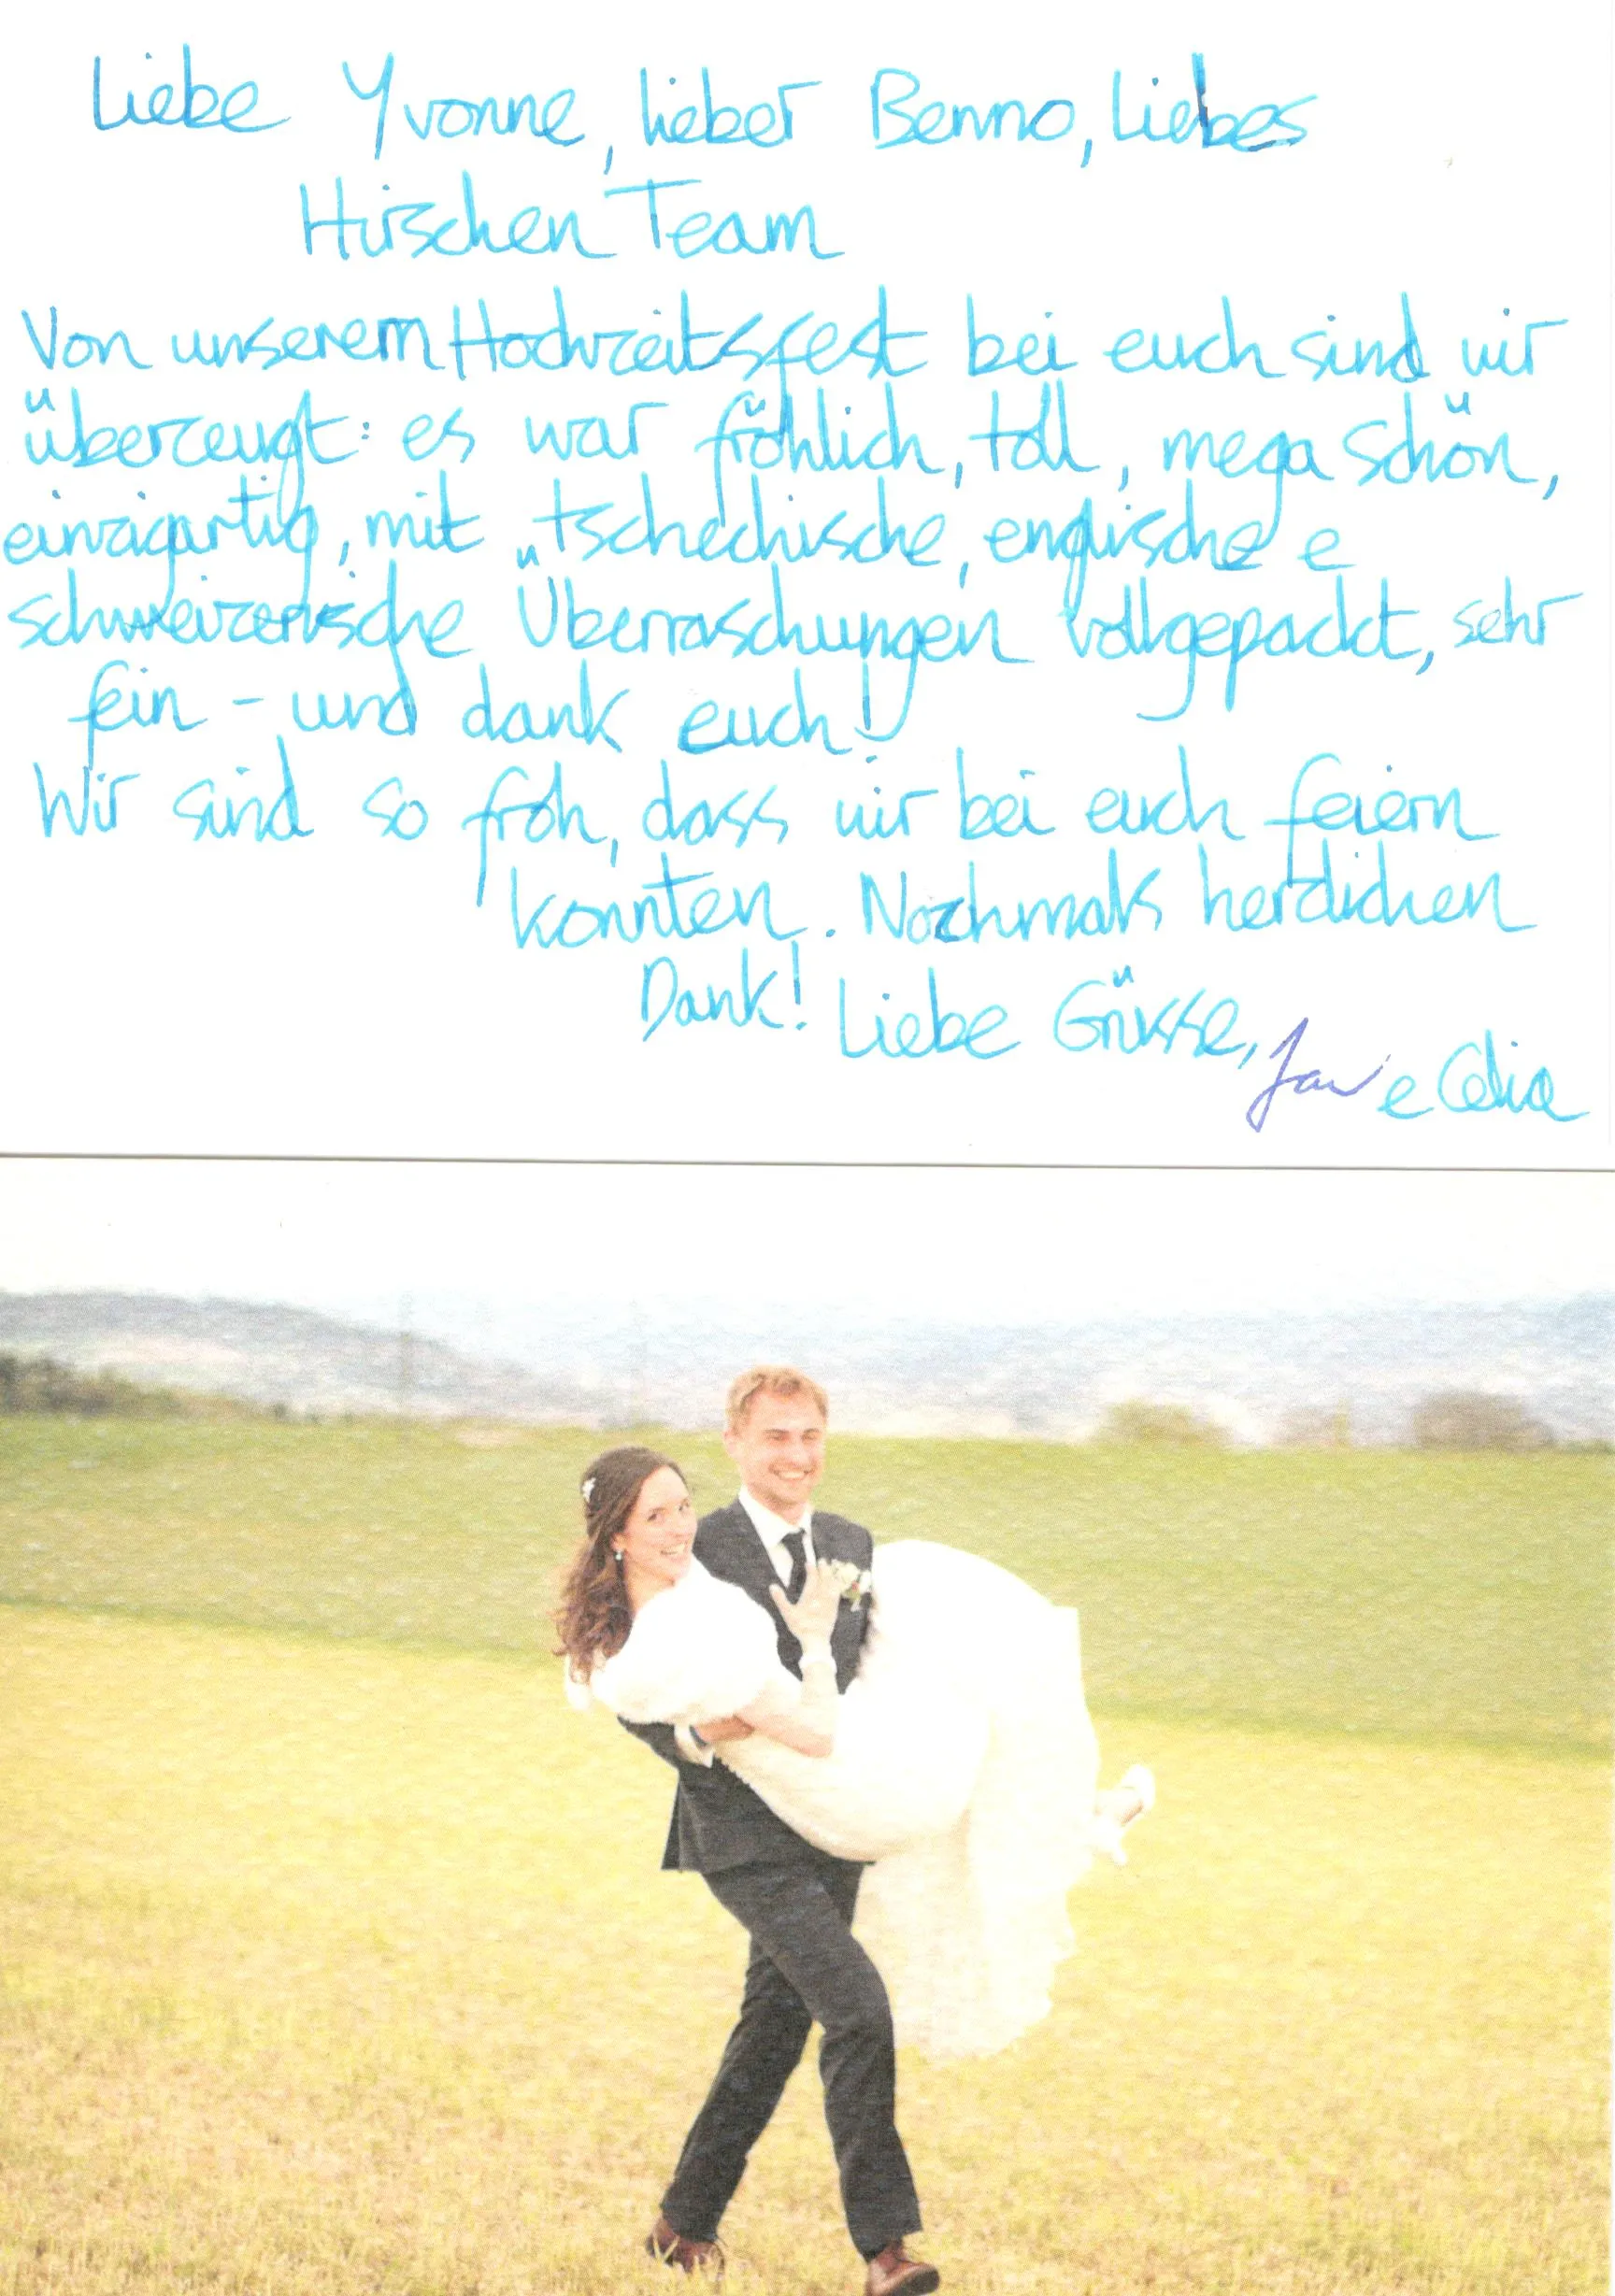 Liebe Yvonne, lieber Benno, Liebes
Hirschen Team
Von unserem Hochzeitsfest bei euch sind wir
überzeugt: es war fröhlich, toll, mega schön,
einzigartig, mit tschechische, englische e
schweizerische Überraschungen vollgepackt, sehr
fein - und dank euch!
Wir sind so froh, dass wir bei euch feiern
konnten. Nochmals herzlichen
Dank! Liebe Grüsse,
Jan e Celia